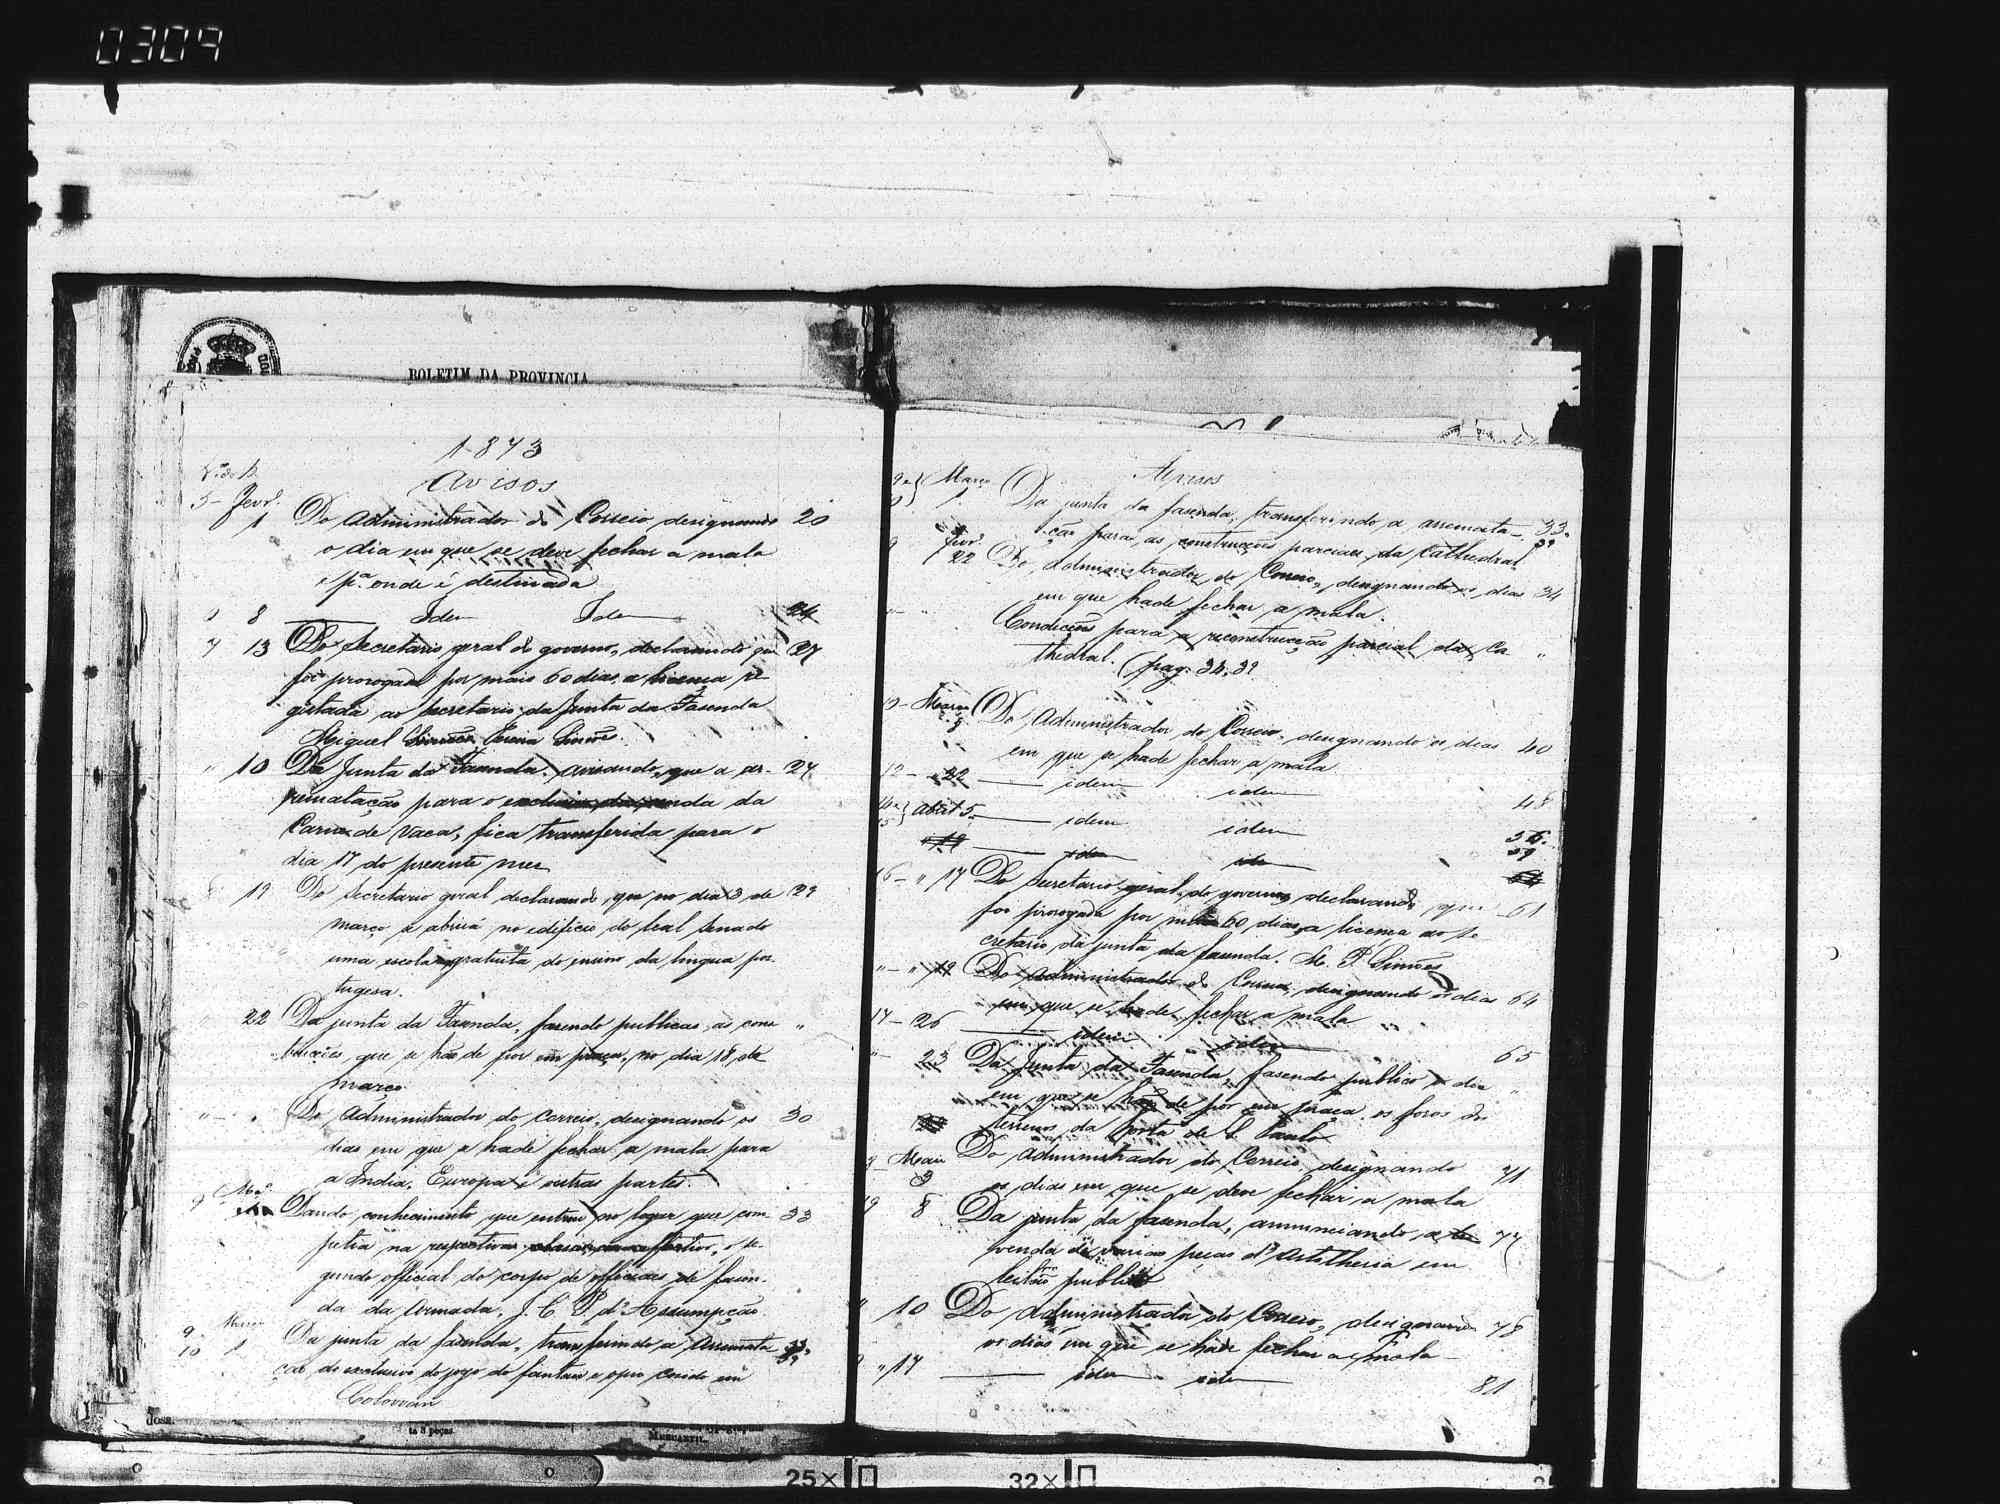 0309
BOLETIM DA PROVINCIA
1873
Avisos
N.º do B.
5 - Fevr.º
1 Do Administrador do Correio designando 20
o dia em que se deve fechar a mala
e p.ª onde é destinada
8 Idem Idem 24
7 13 Do Secretario geral do governo, declarando que 27
foi prorogada por mais 60 dias, a licença re
gistada ao secretario da Junta da Fasenda
Miguel Pereira Simões.
" 10 Da Junta da Fasenda, avisando, que a ar- 27
rematação para o exclusivo da venda da
Carne de Vaca, fica transferida para o
dia 17 do presente mes
19 Do Secretario geral declarando, que no dia 3 de 29
março se abrirá no edificio do leal senado
uma escola gratuita do ensino da lingua por
tugesa.
22 Da junta da Fasenda, fasendo publicas, as cons "
truções, que se hão de pôr em praça, no dia 18 de
março
Do Administrador do Correio, designando os 30
dias em que se hade fechar a mala para
a India, Europa e outras partes.
9 Dando conhecimento que entrou no logar que com 33
petia na respectiva o se-
gundo official do corpo de officiaes de fasen-
da da Armada, J. C. P. d'Assumpção
9 Março
10 1 Da junta da fasenda, transferindo a arremata 33
ção do exclusivo do jogo do fantan e opio cosido em 39
Colowan
Josa.
ta 3 peças
MERCANTIL.
Avisos
9 e Março
1 Da junta da fasenda, transferindo a arremata- 33
ção para as construções parciaes da Cathedral 39
9 Fevr.º
22 Do Administrador do Correio, designando os dias 34
em que hade fechar a mala.
Condicões para a reconstrucção parcial da Ca "
thedral. (pag. 34, 39
10 - Março
8 Do Administrador do Correio, designando os dias 40
em que se hade fechar a mala
12 - 22 idem idem 48
14 e
15 Abril 5 idem idem 56
59
19 idem idem
16 - " 17 Do Secretario geral do governo, declarando, que 61
foi prorogada por mais 60 dias, a licença ao se
cretario da junta da fasenda. M. P. Simões
" - " 19 Do Administrador do Correio, designando os dias 64
em que se hade fechar a mala
17 - 26 idem idem 65
" 23 Da Junta da Fasenda, fasendo publico o dia "
em que se hão de pôr em praça os foros dos
terrenos da horta de S. Paulo
Maio
3 Do Administrador do Correio designando 71
os dias em que se deve fechar a mala
19 8 Da junta da fasenda, annunciando, a 77
venda de varias peças d'Artilheria em
leilão publico
" 10 Do Administrador do Correio, designando 78
os dias em que se hade fechar a mala
" 17 idem idem 81
25×
32×